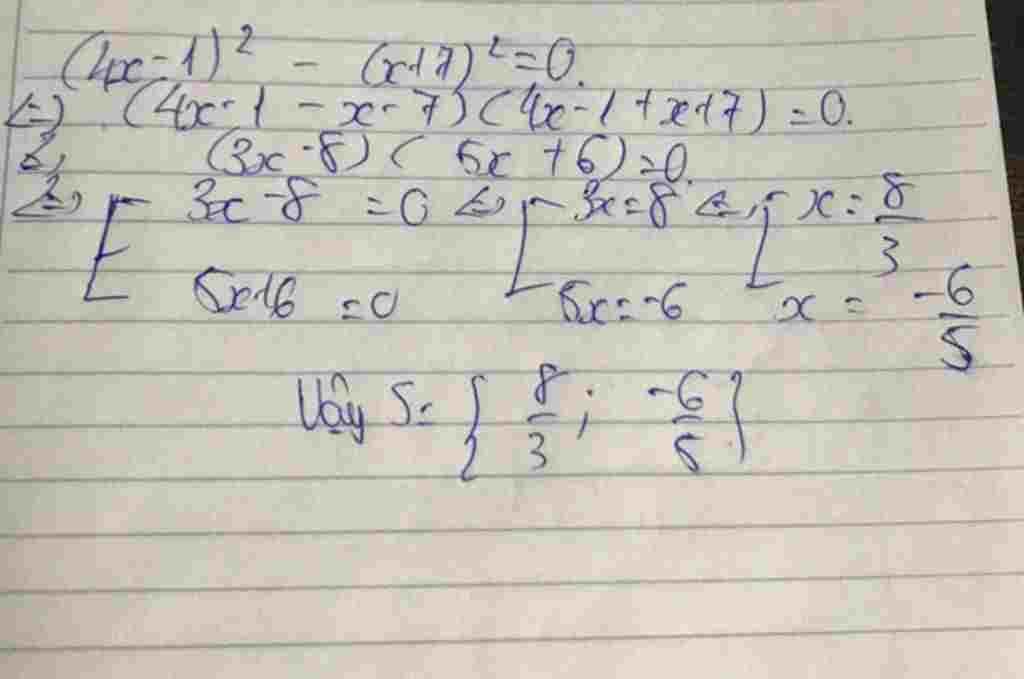 (4x-1)² - (x+7)² = 0.
<=> (4x-1-x-7)(4x-1+x+7) = 0.
<=> (3x-8)(5x+6) = 0.
<=> [ 3x-8 = 0 <=> [ 3x = 8 <=> [ x = 8/3
5x+6 = 0 5x = -6 x = -6/5
Vậy S = { 8/3 ; -6/5 }